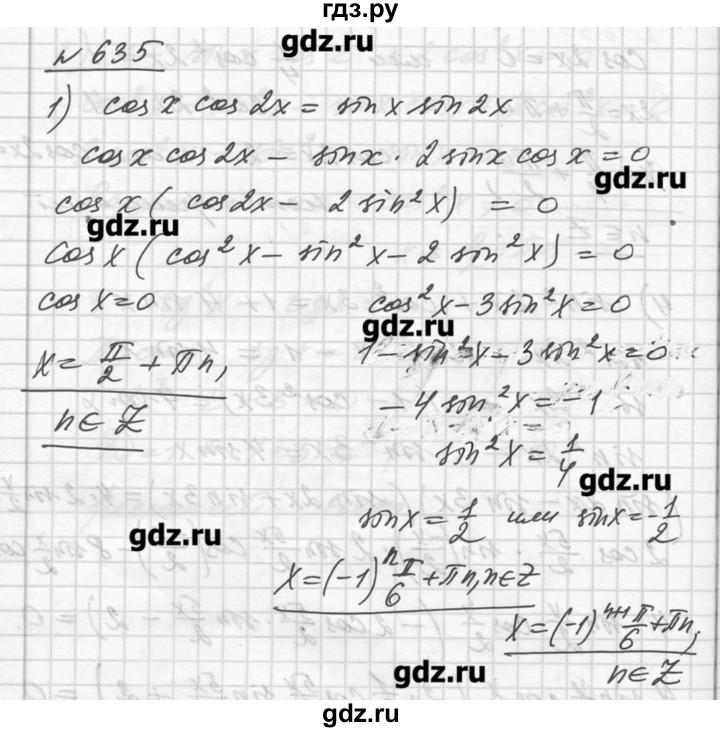 гдз.ру
gdz.ru
№ 635
1) cos x cos 2x = sin x sin 2x
cos x cos 2x − sin x · 2 sin x cos x = 0
gdz.ru
cos x ( cos 2x − 2 sin² x) = 0
gdz.ru
cos x ( cos² x − sin² x − 2 sin² x) = 0
cos x = 0 cos² x − 3 sin² x = 0
gdz.ru
x = π/2 + πn, 1 − sin² x − 3 sin² x = 0
n ∈ Z − 4 sin² x = − 1
sin² x = 1/4
gdz.ru
sin x = 1/2 или sin x = −1/2
gdz.ru
x = (−1)ⁿ π/6 + πn, n ∈ Z
x = (−1)ⁿ⁺¹ π/6 + πn,
n ∈ Z
gdz.ru
gdz.ru